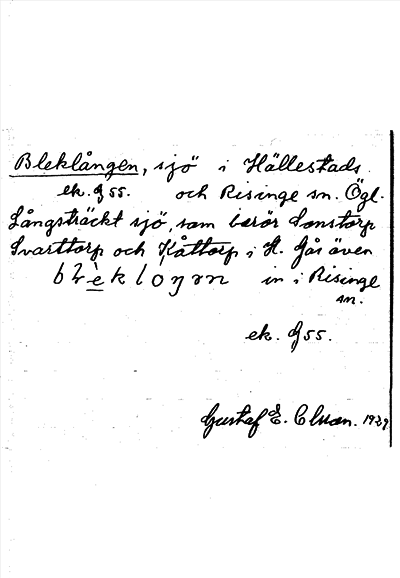 Bleklången, sjö i Hällestads
ek. G 55. och Risinge sn. Ögl.
Långsträckt sjö, som berör Sonstorp
Svarttorp och Kåttorp i H. Går även
blèkloŋən in i Risinge
sn.
ek. G 55.
Gustaf E. 1929